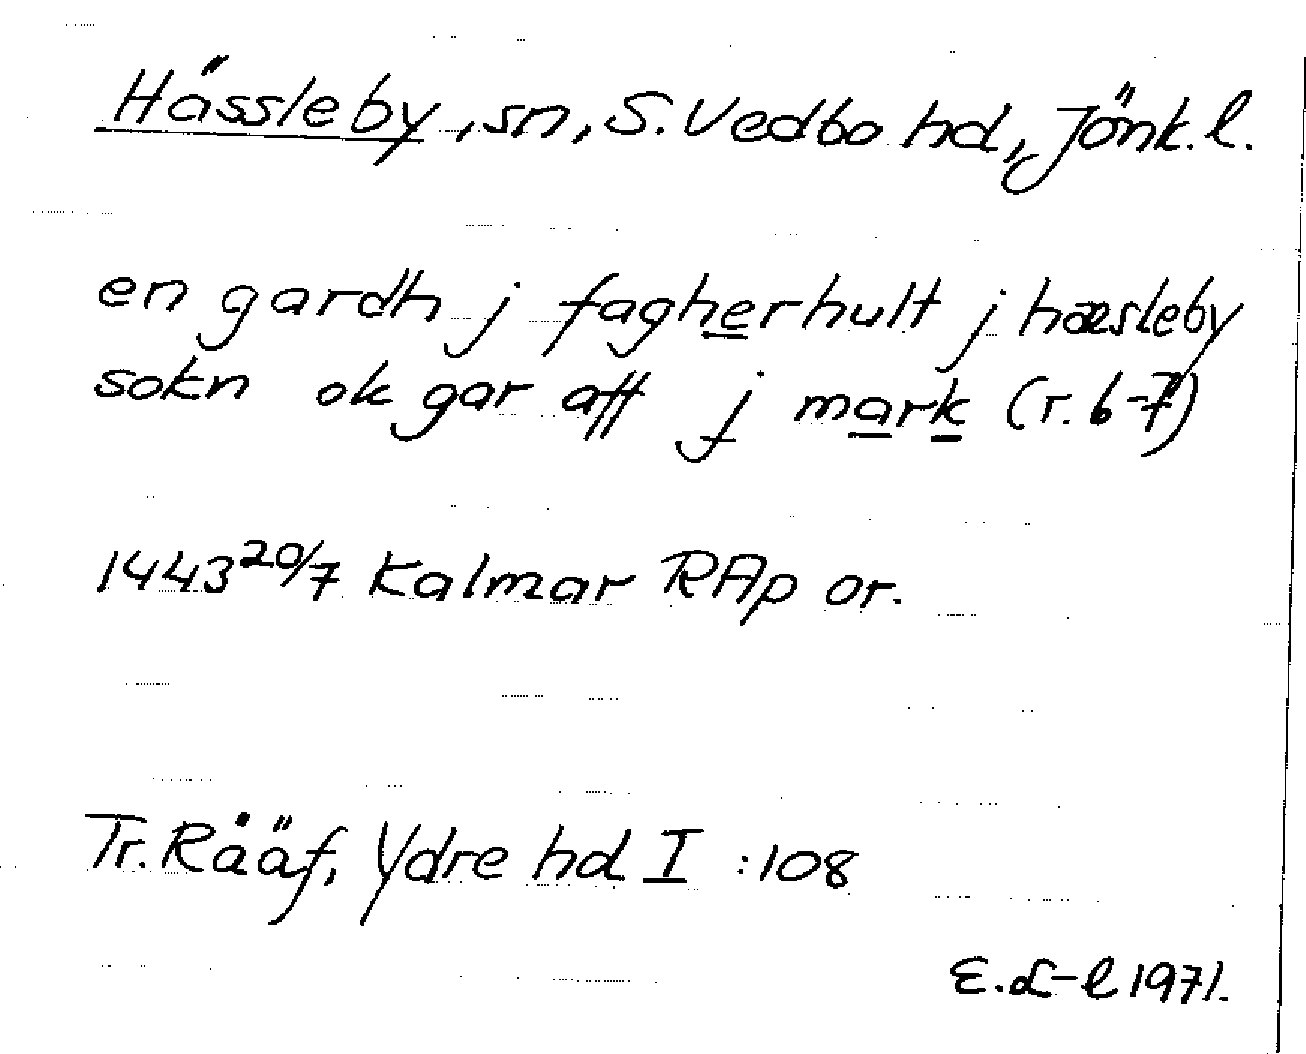 Hässleby, sn, S. Vedbo hd, Jönk. l.
en gardh j fagherhult j hæsleby
sokn ok gar aff j mark (r. 6-7)
1443 20/7 Kalmar RAp or.
Tr. Rååf, Ydre hd I :108
E. L-l 1971.